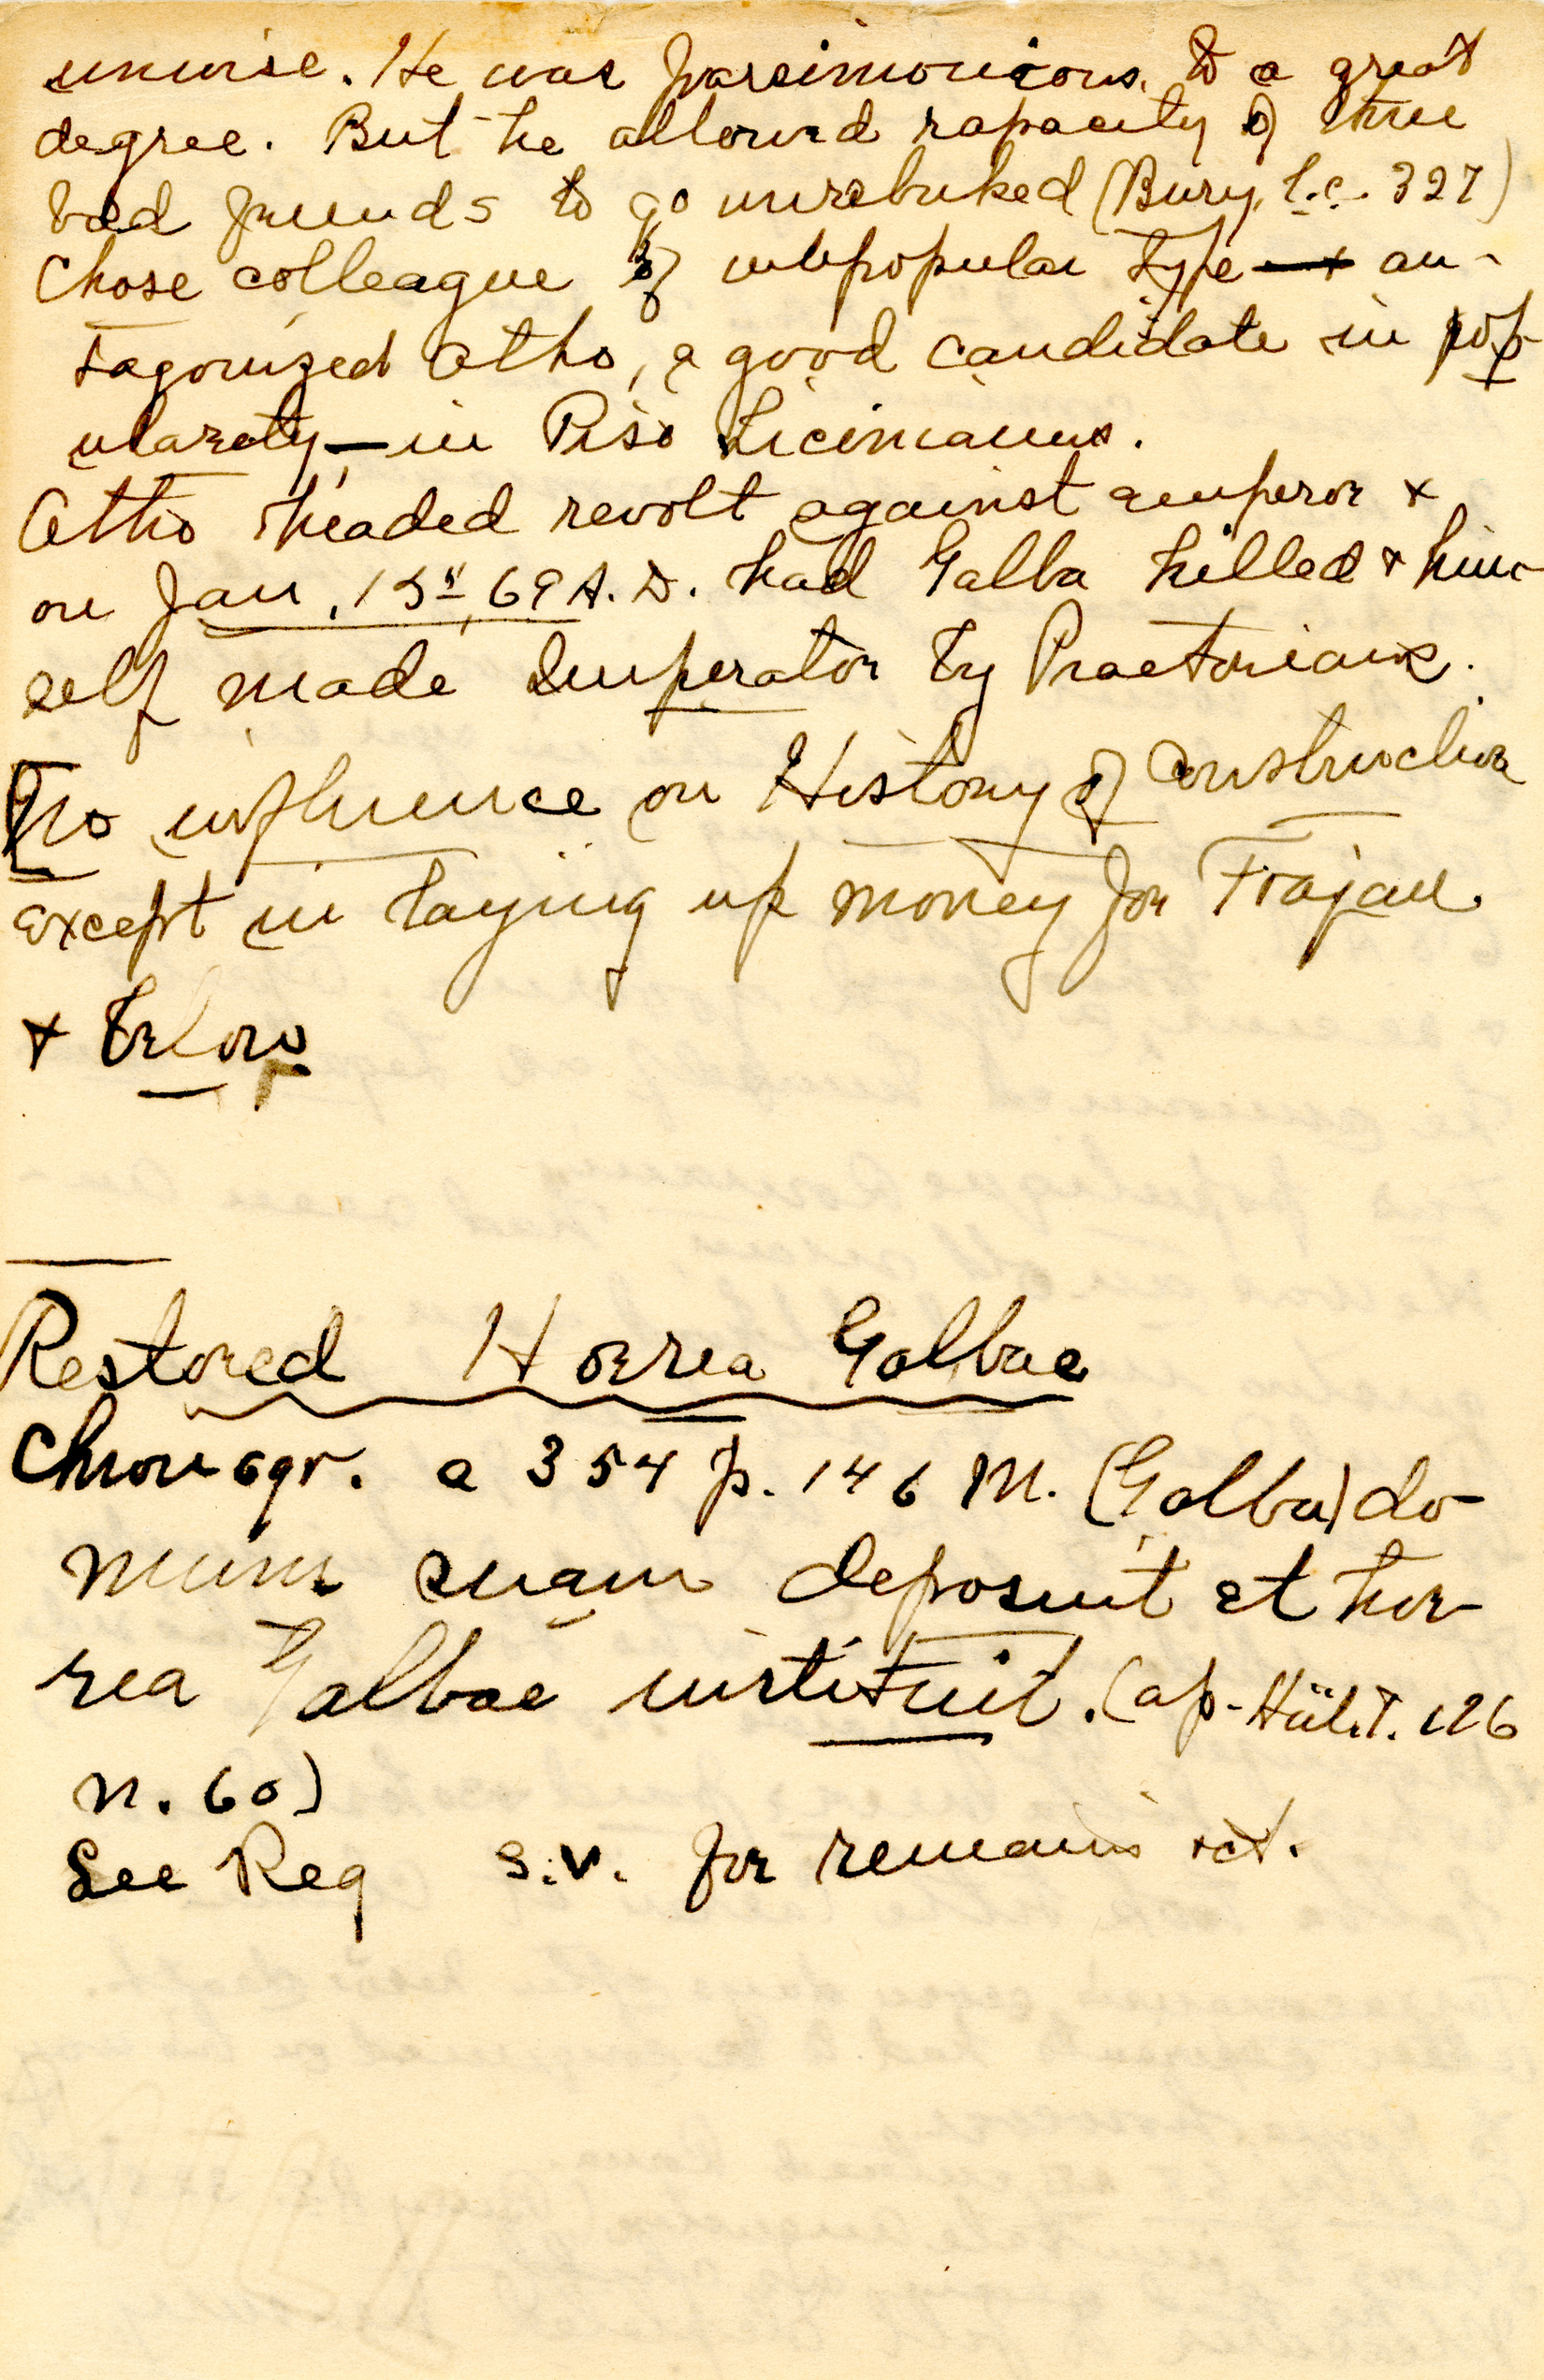 unwise. He was parsimonious to a great
degree. But he allowed rapacity of three
bad friends to go unrebuked (Bury, l.c. 327)
Chose colleague of unpopular type + an-
tagonized Otho, a good candidate in pop-
ularity — in Piso Licinianus.
Otho headed revolt against emperor +
on Jan. 15, 69 A.D. had Galba killed + him-
self made Imperator by Praetorians.
No influence on History of Construction
except in laying up money for Trajan.
+ below
Restored Horrea Galbae
Chronogr. a 354 p. 146 M. (Galba) do-
mum suam deposuit et hor-
rea Galbae instituit. (ap. Hül. T. 126
n. 60)
See Reg s.v. for remains &ct.